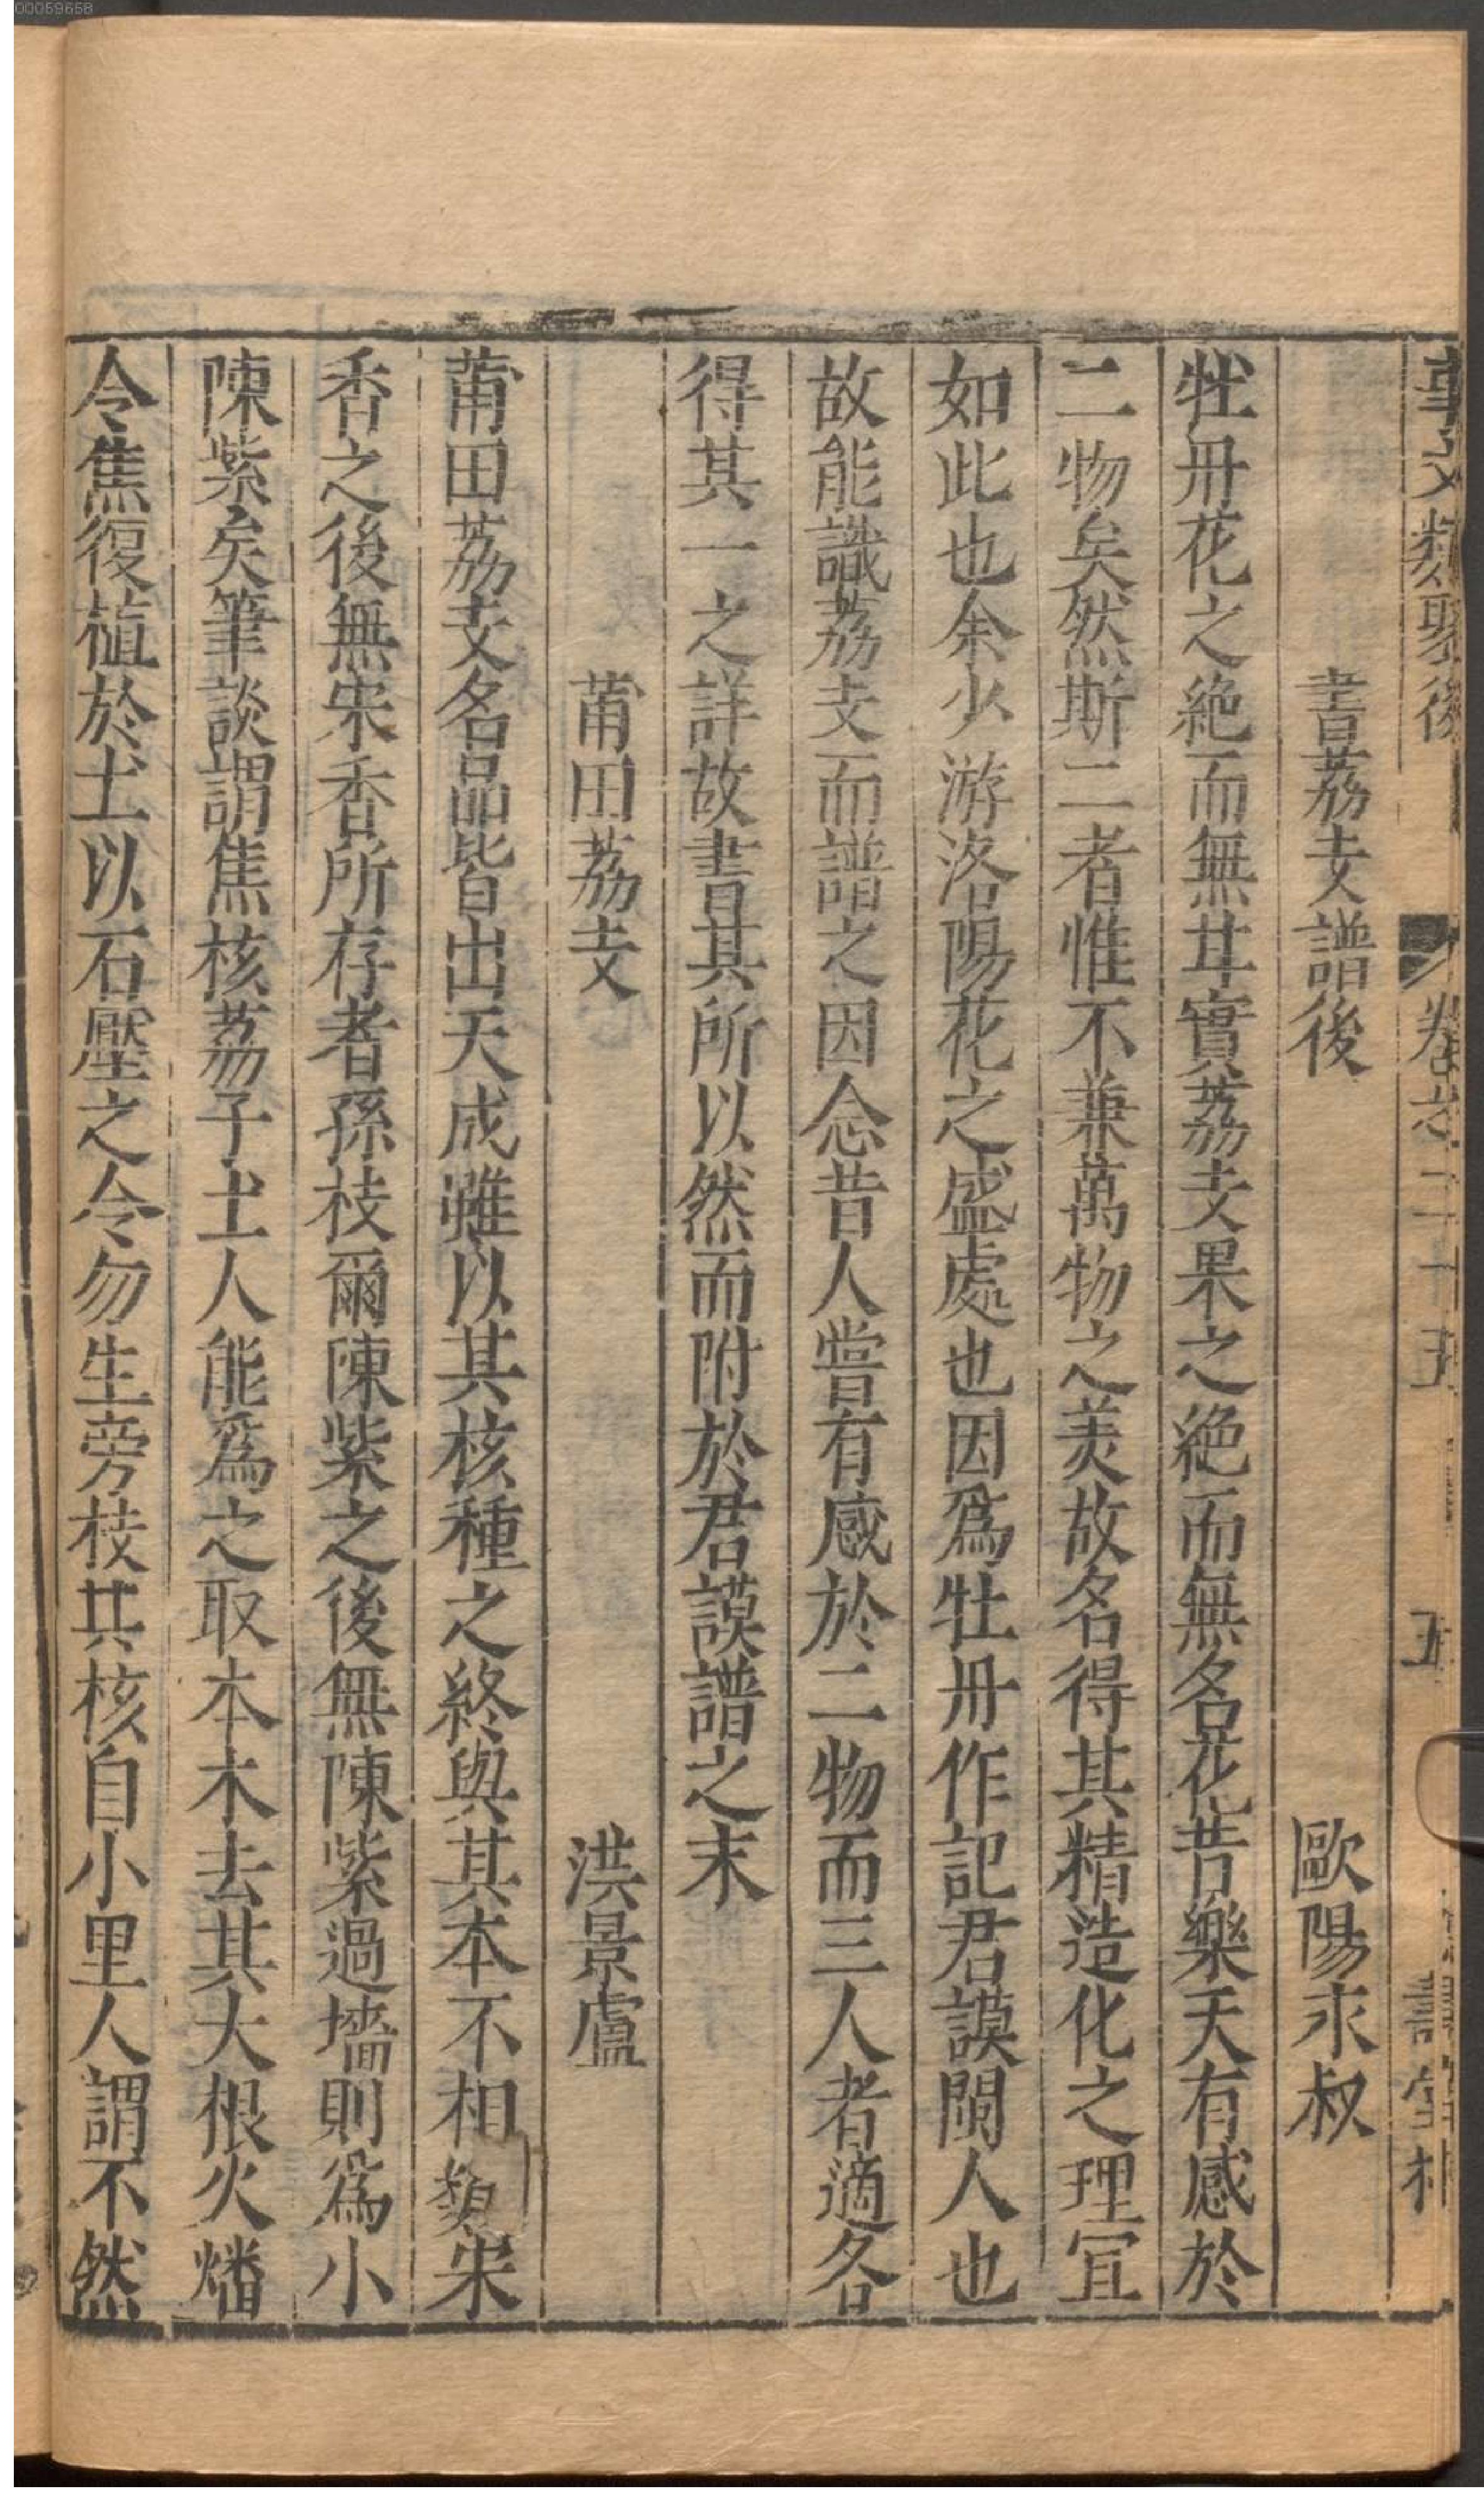 00059658
事文類聚後 卷之二十五 五 壽堂梓
書荔支譜後 歐陽永叔
牡丹花之絶而無甘實荔支果之絶而無名花昔樂天有感於
二物矣然斯二者惟不兼萬物之美故名得其精造化之理宜
如此也余少游洛陽花之盛處也因爲牡丹作記君謨閩人也
故能識荔支而譜之因念昔人嘗有感於二物而三人者適各
得其一之詳故書其所以然而附於君謨譜之末
莆田荔支 洪景盧
莆田荔支名品皆出天成雖以其核種之終與其本不相類宋
香之後無宋香所存者孫枝爾陳紫之後無陳紫過墻則爲小
陳紫矣筆談謂焦核荔子土人能爲之取本木去其大根火燔
令焦復植於土以石壓之令勿生旁枝其核自小里人謂不然